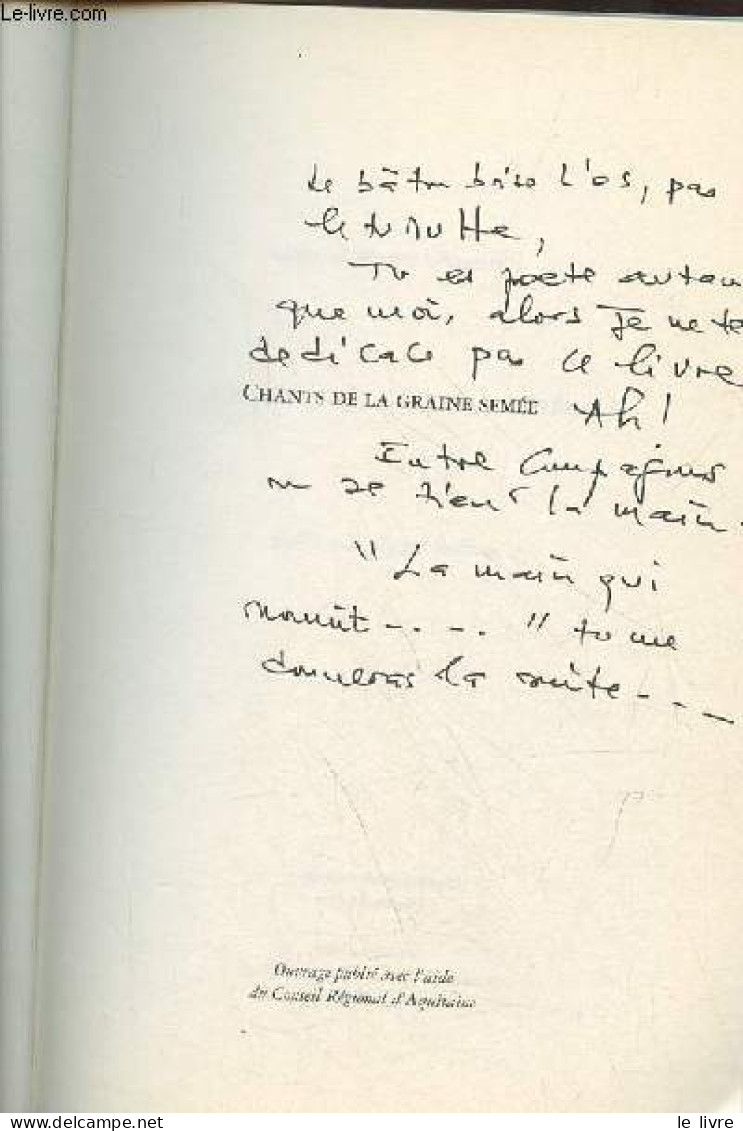 Le-livre.com
Le bâton brise l'os, pas
Tu es poete autan
que moi, alors Je ne te
dedicace pas ce livre
CHANTS DE LA GRAINE SEMÉE Ah!
Entre Compagnons
on se tient la main.
"La main qui
nourrit - . - . " tu me
donneras la suite - - -
Ouvrage publié avec l'aide
du Conseil Régional d'Aquitaine
le livre